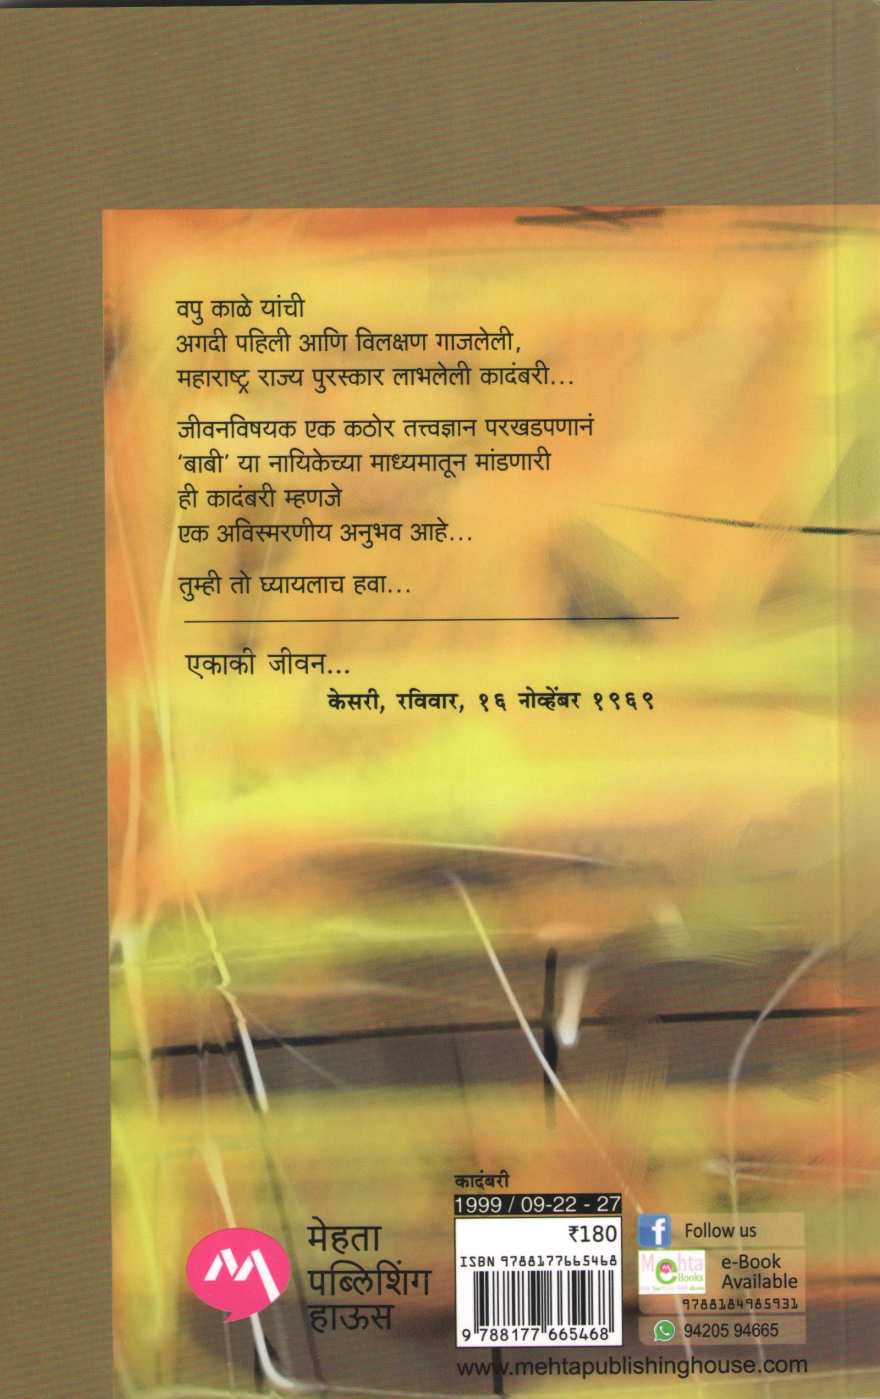 वपु काळे यांची
अगदी पहिली आणि विलक्षण गाजलेली,
महाराष्ट्र राज्य पुरस्कार लाभलेली कादंबरी...
जीवनविषयक एक कठोर तत्त्वज्ञान परखडपणानं
'बाबी' या नायिकेच्या माध्यमातून मांडणारी
ही कादंबरी म्हणजे
एक अविस्मरणीय अनुभव आहे...
तुम्ही तो घ्यायलाच हवा...
एकाकी जीवन...
केसरी, रविवार, १६ नोव्हेंबर १९६९
मेहता
पब्लिशिंग
हाऊस
कादंबरी
1999 / 09-22 - 27
₹180
ISBN 9788177665468
9 788177 665468
Follow us
Mehta
eBooks
e-Book
Available
9788184985931
94205 94665
www.mehtapublishinghouse.com